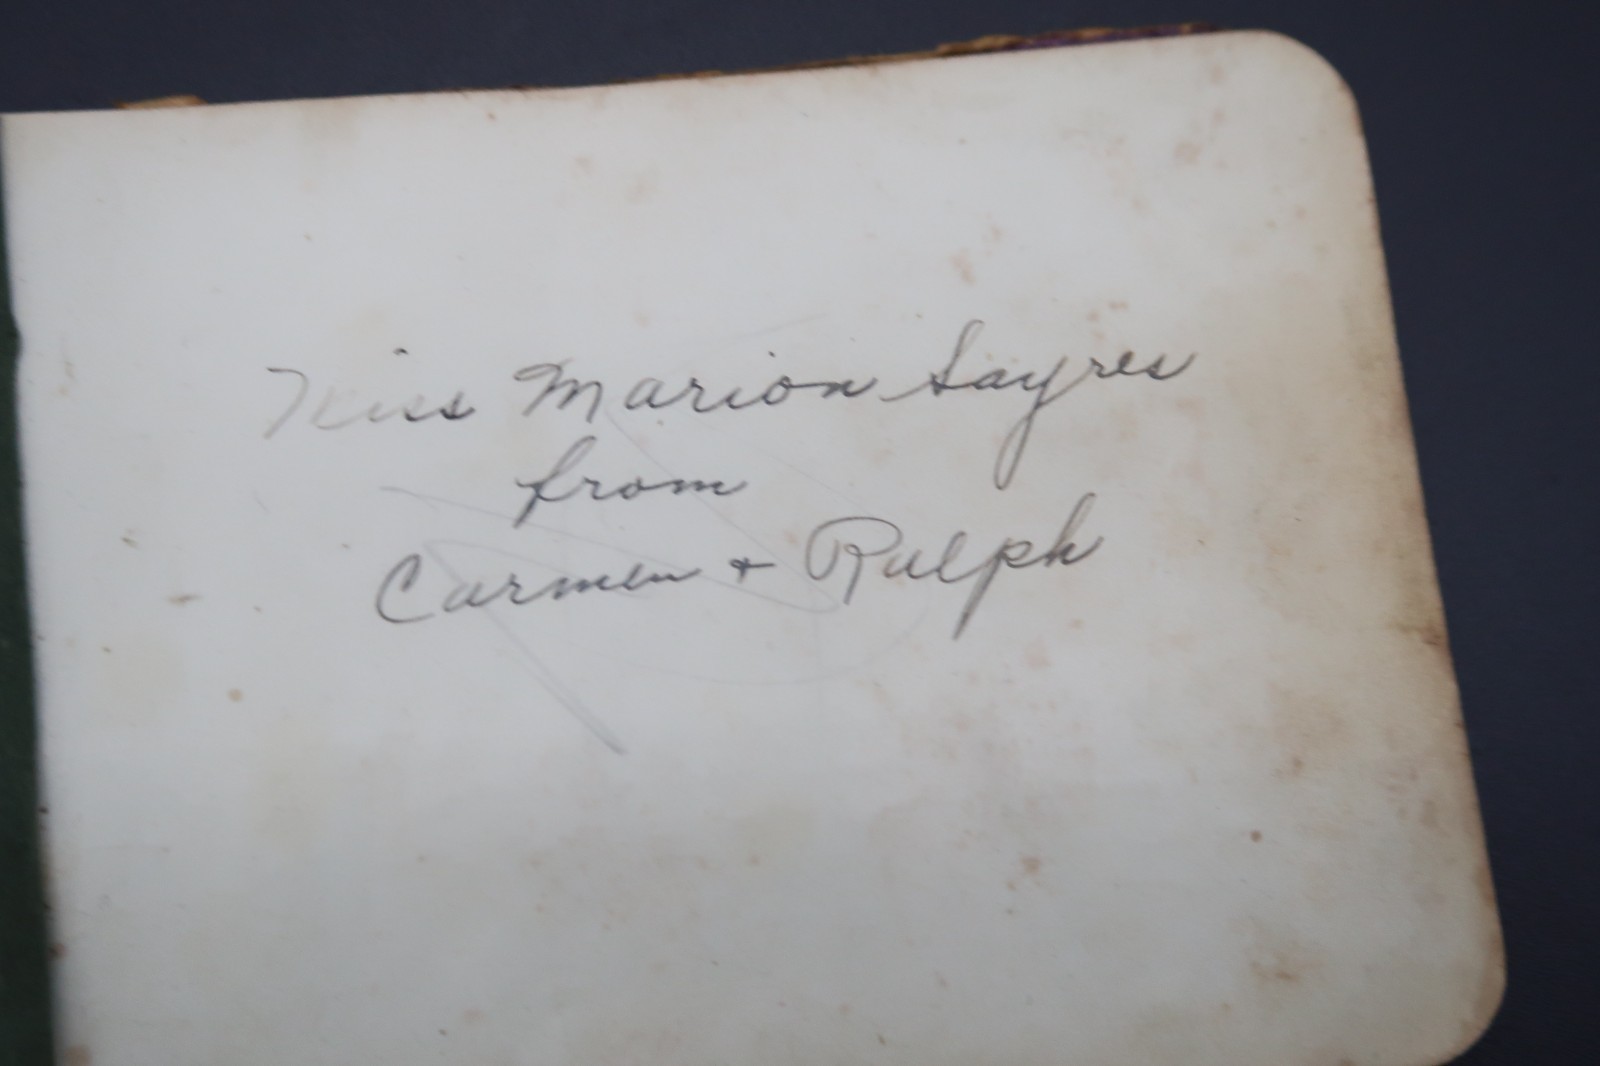 Miss Marion Sayres
from
Carmen + Ralph